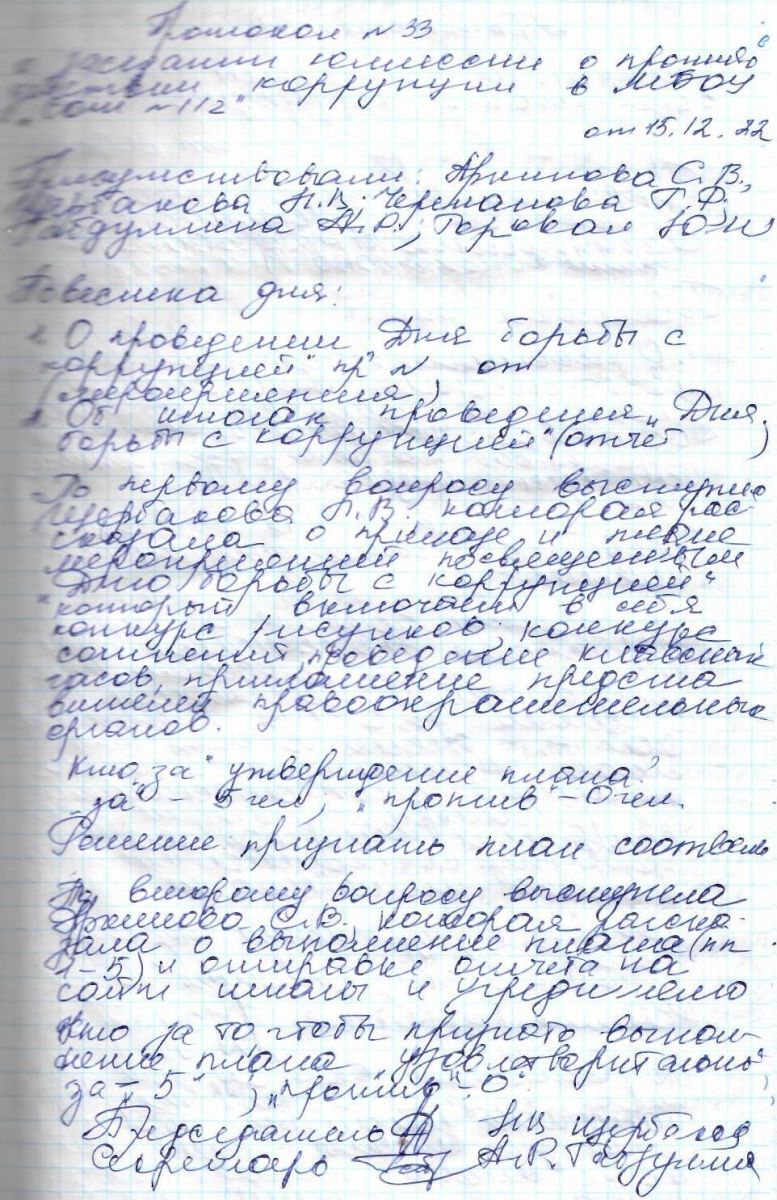 Протокол № 33
заседании комиссии о противо
действии коррупции в МБОУ
"СОШ № 112"
от 15.12.22
Присутствовали: Архипова С.В.,
Щербакова Н.В; Черепанова Г.Ф.
Габдуллина А.Р.; Горовая Ю.Н
Повестка дня:
1. О проведении "Дня борьбы с
коррупцией" пр № от
(мероприятия)
2. Об итогах проведения "Дня
борьбы с коррупцией" (отчёт )
По первому вопросу выступила
Щербакова Н.В. которая рас-
сказала о приказе и плане
мероприятий посвященным
"Дню борьбы с коррупцией"
который включает в себя
конкурс рисунков, конкурс
сочинений, проведение классных
часов, приглашение предста
вителей правоохранительных
органов.
Кто "за" утверждение плана?
"за" – 5 чел; "против" – 0 чел.
Решение: признать план
По второму вопросу выступила
Архипова С.В. которая расска-
зала о выполнение плана (пп
1-5) и отправке отчета на
сайт школы и учредителю
Кто за то чтобы признать выпол-
нение плана "удовлетворительны"
за – 5", "против" - 0"
Председатель НВ Щербакова
Секретарь А.Р. Габдуллина